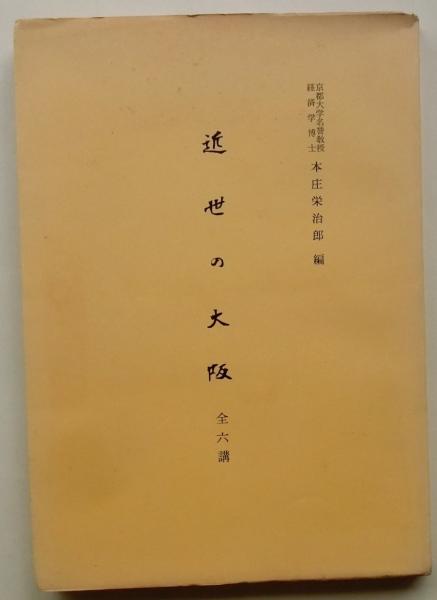 京都大学名誉教授
経済学博士
本庄栄治郎 編
近世の大阪
全六講